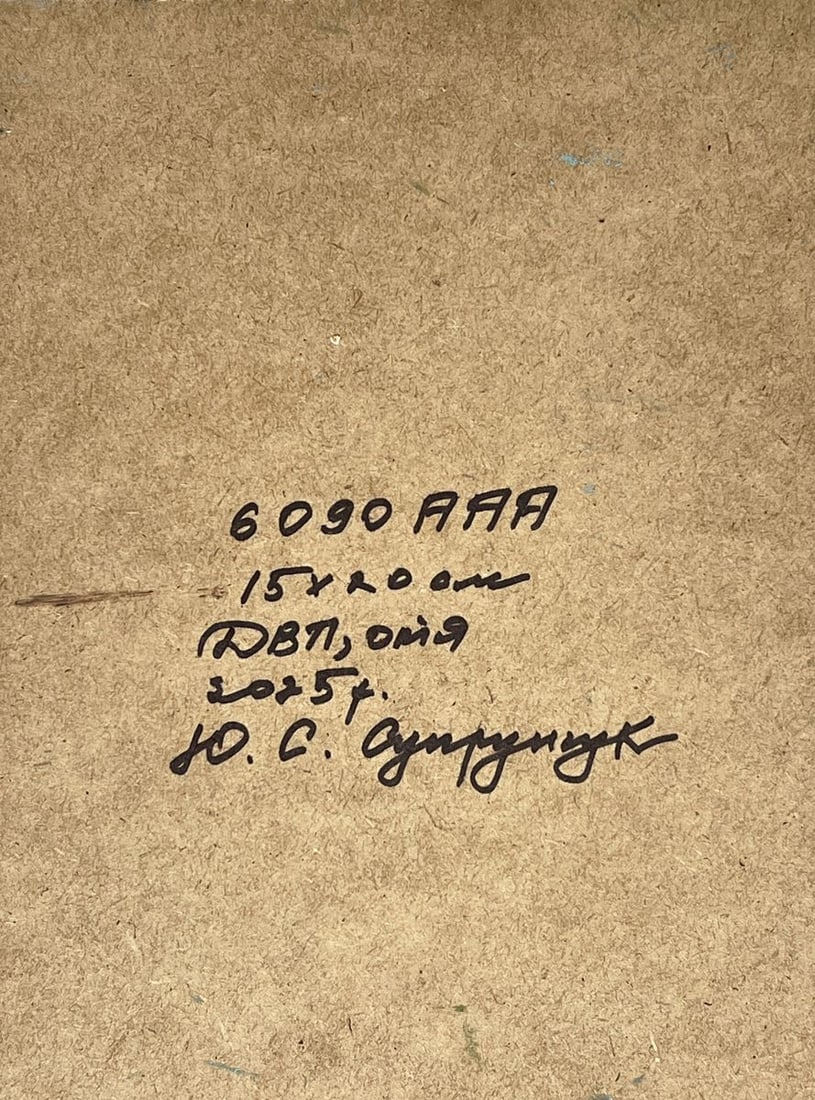 6090 ААА
15х20 см
ДВП, омя
2025г.
Ю. С. Супрунчук